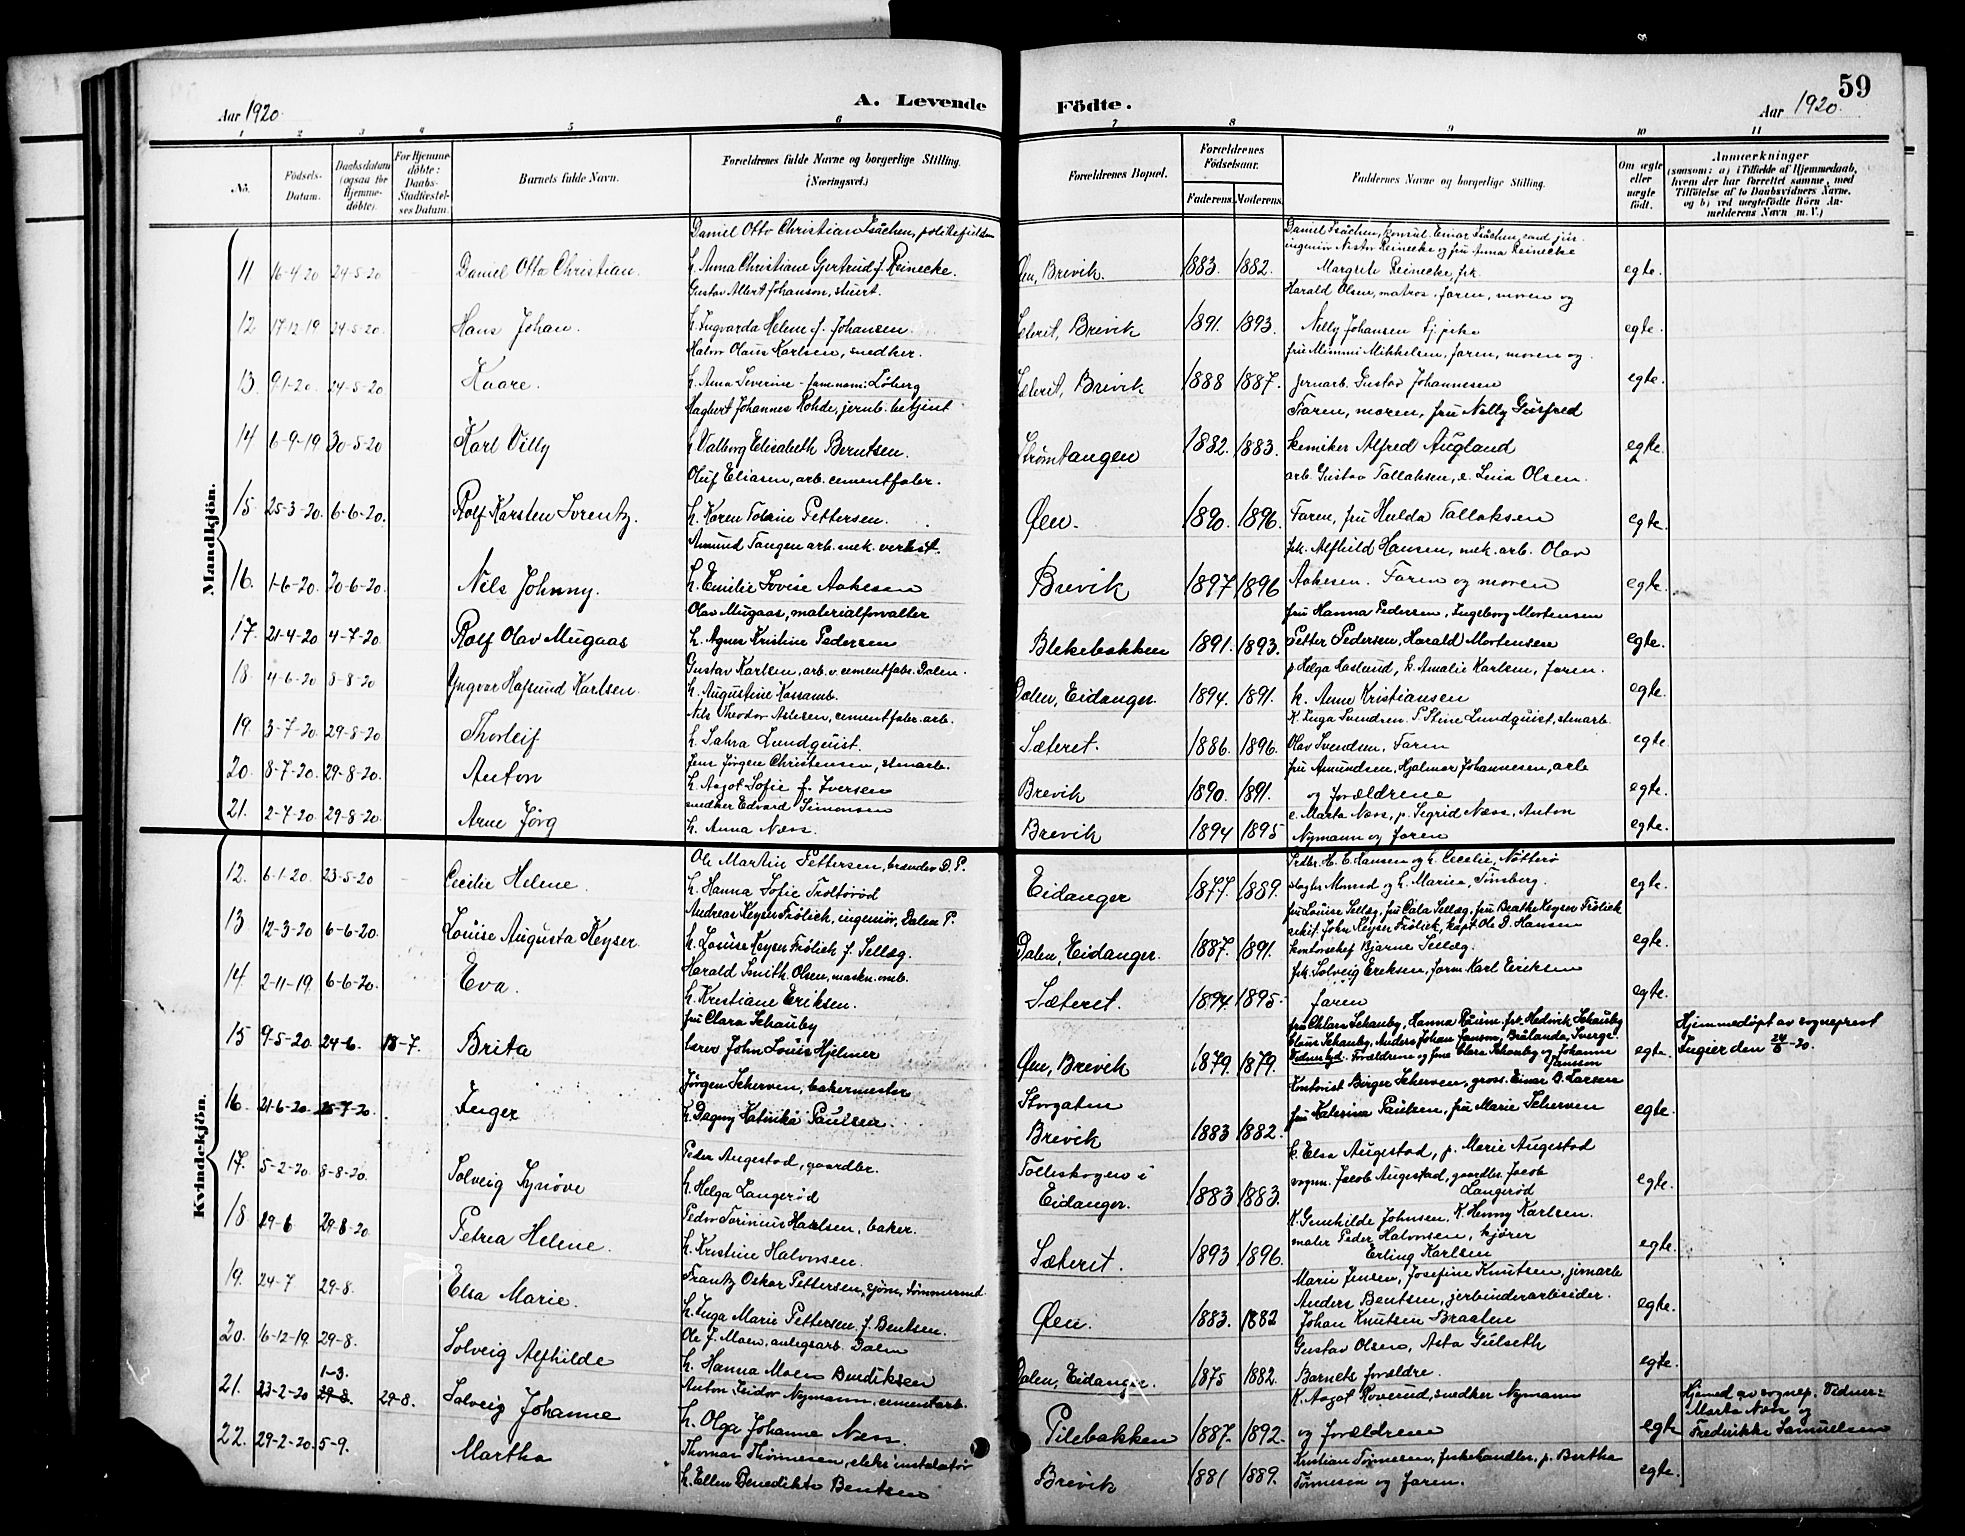 59
Aar 1920.
A. Levende
Födte.
Aar 1920.
1 2 3 4 5 6 7 8 9 10 11
No.
Födsels-
Datum.
Daabsdatum
(ogsaa for
Hjemme-
döbte).
For Hjemme-
döbte:
Daabs-
Stadfæstel-
ses Datum.
Barnets fulde Navn.
Forældrenes fulde Navne og borgerlige Stilling.
(Næringsvei.)
Forældrenes Bopæl.
Forældrenes
Födselsaar.
Faderens. Moderens.
Faddernes Navne og borgerlige Stilling.
Om ægte
eller
uægte
födt.
Anmærkninger
(saasom: a) i Tilfælde af Hjemmedaab,
hvem der har forrettet samme, med
Tilföielse af to Daabsvidners Navne,
og b) ved uægtefödte Börn An-
melderens Navn m. V.)
Mandkjön.
Daniel Otto Christian Isachsen, politifuldm
11 16-4-20 24-5-20 Daniel Otto Christian. h. Anna Christiane Gjertrud f. Reinecke. Øen, Brevik. 1883. 1882. Margrete Reinecke, frk. egte.
Gustav Albert Johanson, stuert. Harald Olsen, matros, faren, moren og
12 17-12-19 24-5-20. Hans Johan. h. Ingvarda Helene f. Johansen Sæteret, Brevik 1891. 1893. Nelly Johansen tj. pike egte.
Halvor Olaus Karlsen, snedker. fru Mimmi Mikkelsen, faren, moren og
13. 9-1-20. 24-5-20 Kaare. h. Anna Severine - fam.navn: Løberg Sæteret, Brevik 1888 1887. jernarb. Gustav Johannesen egte.
Hagbert Johannes Rohde, jernb. betjent Faren, moren, fru Nelly Gusfred
14 6-9-19. 30-5-20 Karl Villy h. Valborg Elisabeth Berntsen. Strømtangen 1882. 1883. kemiker Alfred Augland egte.
Oluf Eliasen, arb. cementfabr. arb. Gustav Tallaksen, e. Lina Olsen.
15 25-3-20. 6-6-20. Rolf Karsten Lorentz. h. Karen Tobine Pettersen. Øen. 1890. 1896. Faren, fru Hulda Tallaksen egte.
Amund Tangen arb. mek. verkst. frk. Alfhild Hansen, mek. arb. Olav
16. 1-6-20. 20-6-20. Nils Johnny. h. Emilie Lovise Aakesen Brevik 1897 1896 Aakesen. Faren og moren egte.
Olav Mugaas, materialforvalter fru Hanna Pedersen, Ingeborg Mortensen
17. 21-4-20 4-7-20. Rolf Olav Mugaas h. Agnes Kristine Pedersen Blekebakken 1891. 1893. Petter Pedersen, Harald Mortensen egte.
Gustav Karlsen, arb. v. cementfabr. Dalen. p. Helga Haslund, k. Amalie Karlsen, faren.
18. 4-6-20 8-8-20 Yngvar Hafsund Karlsen. h. Augustine Dalen, Eidanger. 1894. 1891. k. Anne Kristiansen egte.
Nils Theodor Aslesen, cementfabr. arb. K. Inga Svendsen. P. Stine Lundquist, stenarb.
19. 3-7-20. 29-8-20 Thorleif h. Sahra Lundquist. Sæteret. 1886. 1896. Olav Svendsen, Faren egte.
Jens Jørgen Christensen, stenarb. fru Amundsen, Hjalmar Johannesen, arb
20. 8-7-20. 29-8-20. Anton h. Aagot Sofie f. Iversen Brevik 1890. 1891. og forældrene egte.
snedker Edvard Simonsen e. Marta Næss, p. Segrid Næss, Anton
21. 2-7-20. 29-8-20. Arne Jørg h. Anna Næss. Brevik 1894 1895 Nymann og faren egte.
Kvindekjön.
Ole Martin Pettersen, brænder D. P.
12. 6-1-20. 23-5-20 Cecilie Helene. h. Hanna Sofie Eidanger 1877. 1889. h. Marie, Tønsberg. egte.
Andreas Keyser Frölich, ingeniør, Dalen P. fru Louise Sellæg, fru Cala Sellæg, fru Beathe Keyser Frölich
13 12-3-20 6-6-20. Louise Augusta Keyser. h. Louise Keyser Frölich f. Sellæg. Dalen, Eidanger. 1887. 1891. kontorchef Bjarne Sellæg. egte.
Harald Smith. Olsen, maskn. frk. Solveig Eriksen, Karl Eriksen
14. 2-11-19. 6-6-20. Eva. h. Kristiane Eriksen. Sæteret. 1894. 1895. faren egte.
fru Clara Schauby Hjemmedøpt av sogneprest
15 9-5-20. 24-6. 18-7. Brita Lærer John Louis Hjelmer Øen, Brevik 1879. 1879. egte. Ingier den 24/6-20.
Jørgen Scherven, bakermester Kontorist Birger Scherven, gross. Einar B. Larsen
16. 21-6-20. 25-7-20. Inger h. Dagny Katinka Paulsen. Storgaten Brevik 1883 1882. fru Katerina Paulsen, fru Marie Scherven egte.
Peder Augestad, gaardbr. k. Elsa Augestad, p. Marie Augestad
17. 5-2-20. 8-8-20. Solveig Synøve h. Helga Langerød Eidanger. 1883 1883. Jacob Augestad, gaardbr. Jacob Langerød egte.
Karlsen, baker. K. Henny Karlsen.
18 29-6 29-8-20 Petrea Helene. h. Kristine Halvorsen. Sæteret. 1893 1896. maler Peder Halvorsen, kjører Erling Karlsen egte.
Frantz Oskar Pettersen, sjøm. tømmermd. Marie Jensen, Josefine Knutsen, jernarb
19. 24-7 29-8. Elsa Marie. h. Inga Marie Pettersen. f. Bentsen. Øen. 1883. 1882 Anders Bentsen, Johan Knutsen Braaten egte.
Ole J. Moen, anlegsarb. Dalen Gustav Olsen, Asta Gulseth
20. 16-12-19. 29-8. Solveig Alfhilde h. Hanna Moen Bendiksen Dalen, Eidanger. 1875 1882. Barnets forældre. egte.
Anton Isidor Nymann, cementarb. K. Aagot Roverud, snedker Nymann
21. 23-2-20 1-3. 29-8. 29-8. Solveig Johanne h. Olga Johanne Næss. Pilebakken 1887. 1892. og forældrene egte Hjemed. av sognep. Vidner:
Marta Næss og
Frederikke Samuelsen
22. 29-2-20. 5-9. Martha Thomas Thønnesen, elektr. instalatør Brevik 1881 1889. Kristian Tønnesen, fiskehandler, p. Bertha egte.
h. Ellen Benedikte Bentsen Tønnesen og faren.